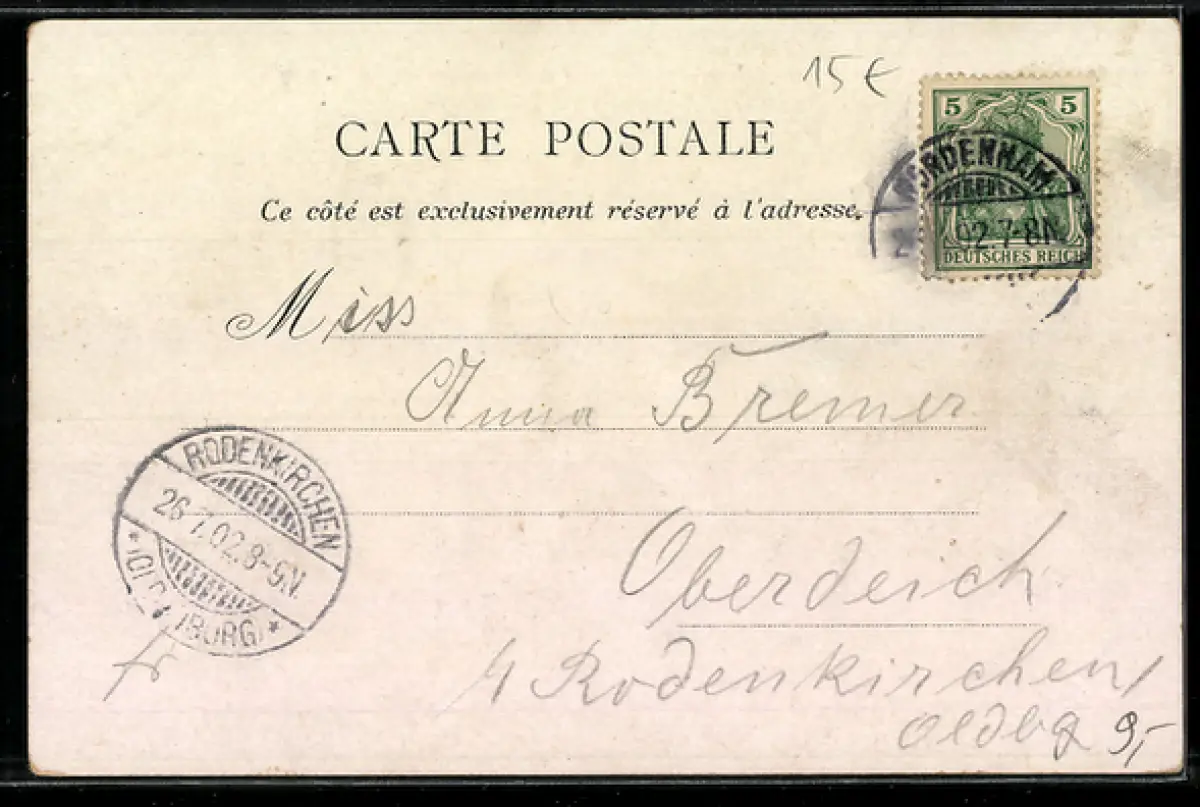 15 €
CARTE POSTALE
Ce côté est exclusivement réservé à l'adresse.
5 5
NORDENHAM
02.7-8N.
DEUTSCHES REICH
Miss
Anna Bremer
RODENKIRCHEN
26.7.02.8-9N.
*(OLDENBURG)*
Oberdeich
Rodenkirchen
Oldbg
fr
9,-